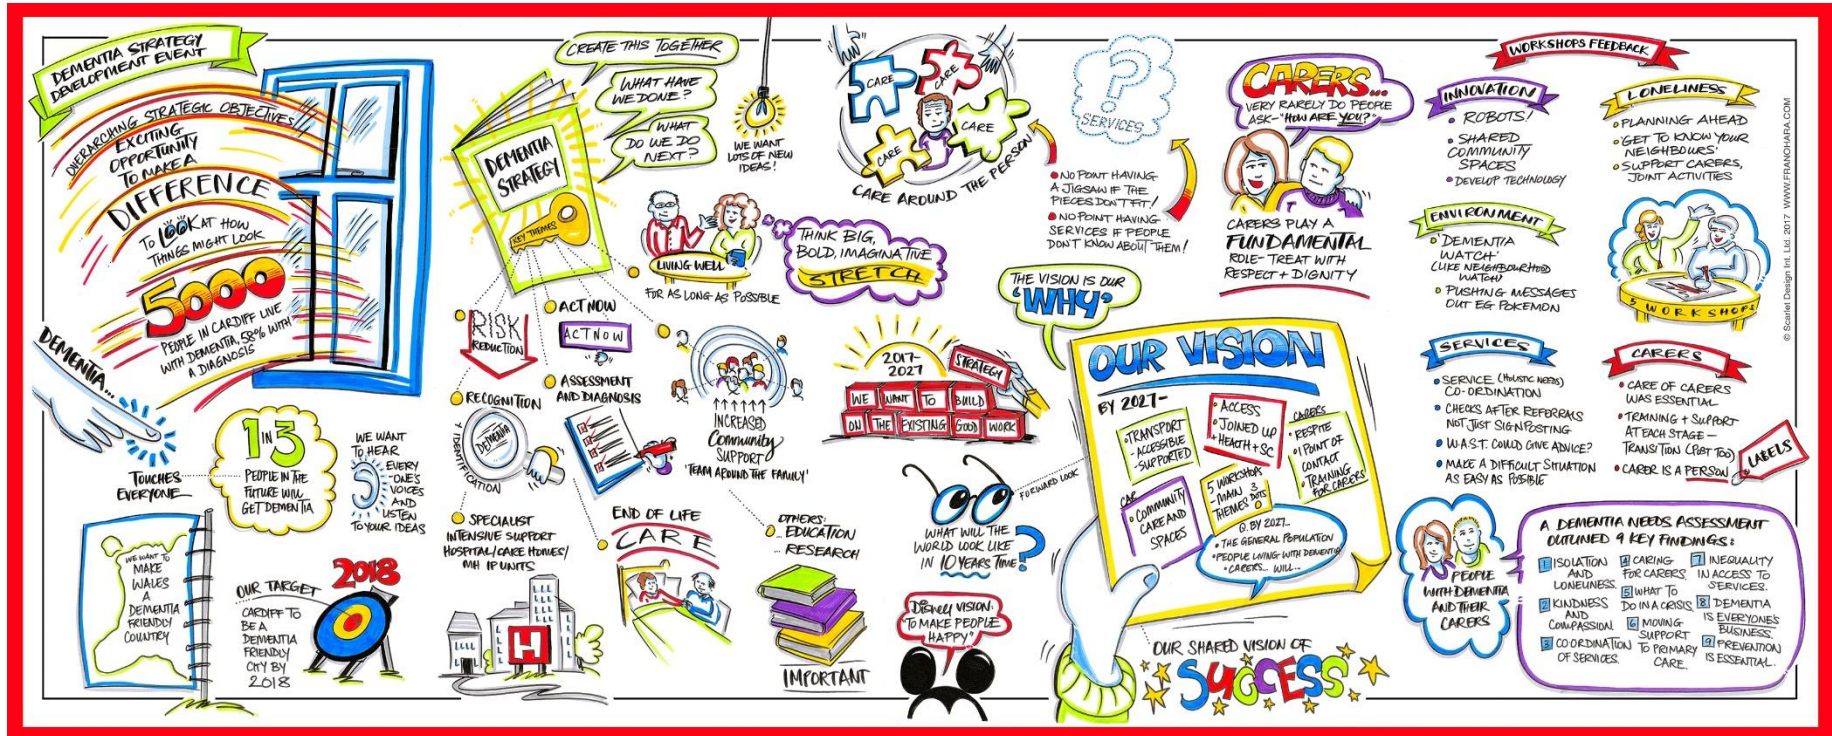 DEMENTIA STRATEGY
DEVELOPMENT EVENT
OVERARCHING STRATEGIC OBJECTIVES
EXCITING
OPPORTUNITY
TO MAKE A
DIFFERENCE
TO LOOK AT HOW
THINGS MIGHT LOOK
5000
PEOPLE IN CARDIFF LIVE
WITH DEMENTIA, 58% WITH
A DIAGNOSIS
DEMENTIA...
TOUCHES
EVERYONE
1 IN 3
PEOPLE IN THE
FUTURE WILL
GET DEMENTIA
WE WANT
TO HEAR
EVERY
-ONE'S
VOICES
AND
LISTEN
TO YOUR IDEAS
WE WANT TO
MAKE
WALES
A
DEMENTIA
FRIENDLY
COUNTRY
OUR TARGET
2018
CARDIFF TO
BE A
DEMENTIA
FRIENDLY
CITY BY
2018
CREATE THIS TOGETHER
WHAT HAVE
WE DONE?
WHAT
DO WE DO
NEXT?
DEMENTIA
STRATEGY
KEY THEMES
WE WANT
LOTS OF NEW
IDEAS!
LIVING WELL
FOR AS LONG AS POSSIBLE
THINK BIG,
BOLD, IMAGINATIVE
STRETCH
RISK
REDUCTION
ACT NOW
ACT NOW
RECOGNITION
DEMENTIA
IDENTIFICATION
ASSESSMENT
AND DIAGNOSIS
INCREASED
Community
SUPPORT
'TEAM AROUND THE FAMILY'
SPECIALIST
INTENSIVE SUPPORT
HOSPITAL/CARE HOMES/
MH IP UNITS
H
END OF LIFE
CARE
OTHERS:
.. EDUCATION
... RESEARCH
IMPORTANT
CARE
CARE
CARE
CARE
CARE AROUND THE PERSON
?
SERVICES
NO POINT HAVING
A JIGSAW IF THE
PIECES DON'T FIT!
NO POINT HAVING
SERVICES IF PEOPLE
DON'T KNOW ABOUT THEM!
2017-
2027
STRATEGY
WE WANT TO BUILD
ON THE EXISTING GOOD WORK
FORWARD LOOK
WHAT WILL THE
WORLD LOOK LIKE
IN 10 YEARS TIME?
Disney VISION:
"TO MAKE PEOPLE
HAPPY"
CARERS...
VERY RARELY DO PEOPLE
ASK - "HOW ARE YOU?"
CARERS PLAY A
FUNDAMENTAL
ROLE - TREAT WITH
RESPECT + DIGNITY
THE VISION IS OUR
'WHY'
OUR VISION
BY 2027-
• TRANSPORT
- ACCESSIBLE
- SUPPORTED
• ACCESS
• JOINED UP
+ HEALTH + SC
CARERS
• RESPITE
• 1 POINT OF
CONTACT
• TRAINING
FOR CARERS
CAR
• COMMUNITY
CARE AND
SPACES
5 WORKSHOPS
- MAIN 3
THEMES DOTS
Q. BY 2027...
• THE GENERAL POPULATION
• PEOPLE LIVING WITH DEMENTIA
• CARERS... WILL...
OUR SHARED VISION OF
SUCCESS
WORKSHOPS FEEDBACK
INNOVATION
• ROBOTS!
• SHARED
COMMUNITY
SPACES
• DEVELOP TECHNOLOGY
LONELINESS
PLANNING AHEAD
'GET TO KNOW YOUR
NEIGHBOURS'
SUPPORT CARERS,
JOINT ACTIVITIES
5 WORKSHOPS
ENVIRONMENT
'DEMENTIA
WATCH'
(LIKE NEIGHBOURHOOD
WATCH)
PUSHING MESSAGES
OUT EG POKEMON
SERVICES
• SERVICE (HOLISTIC NEEDS)
CO-ORDINATION
• CHECKS AFTER REFERRALS
NOT JUST SIGNPOSTING
• W.A.S.T. COULD GIVE ADVICE?
• MAKE A DIFFICULT SITUATION
AS EASY AS POSSIBLE
CARERS
• CARE OF CARERS
WAS ESSENTIAL
• TRAINING + SUPPORT
AT EACH STAGE -
TRANSITION (POST TOO)
• CARER IS A PERSON
LABELS
PEOPLE
WITH DEMENTIA
AND THEIR
CARERS
A DEMENTIA NEEDS ASSESSMENT
OUTLINED 9 KEY FINDINGS:
1 ISOLATION
AND
LONELINESS.
2 KINDNESS
AND
COMPASSION.
3 COORDINATION
OF SERVICES.
4 CARING
FOR CARERS
5 WHAT TO
DO IN A CRISIS
6 MOVING
SUPPORT
TO PRIMARY
CARE.
7 INEQUALITY
IN ACCESS TO
SERVICES.
8 DEMENTIA
IS EVERYONE'S
BUSINESS.
9 PREVENTION
IS ESSENTIAL.
© Scarlet Design Int. Ltd. 2017 WWW.FRANOHARA.COM